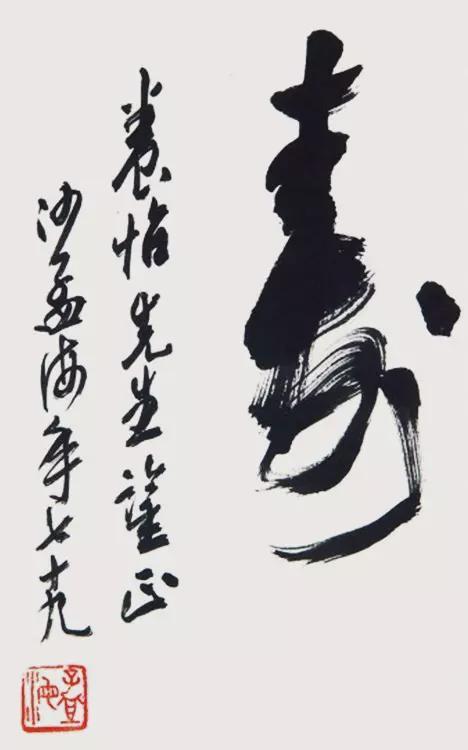 壽
養怡先生正
沙孟海年七十九
沙孟海